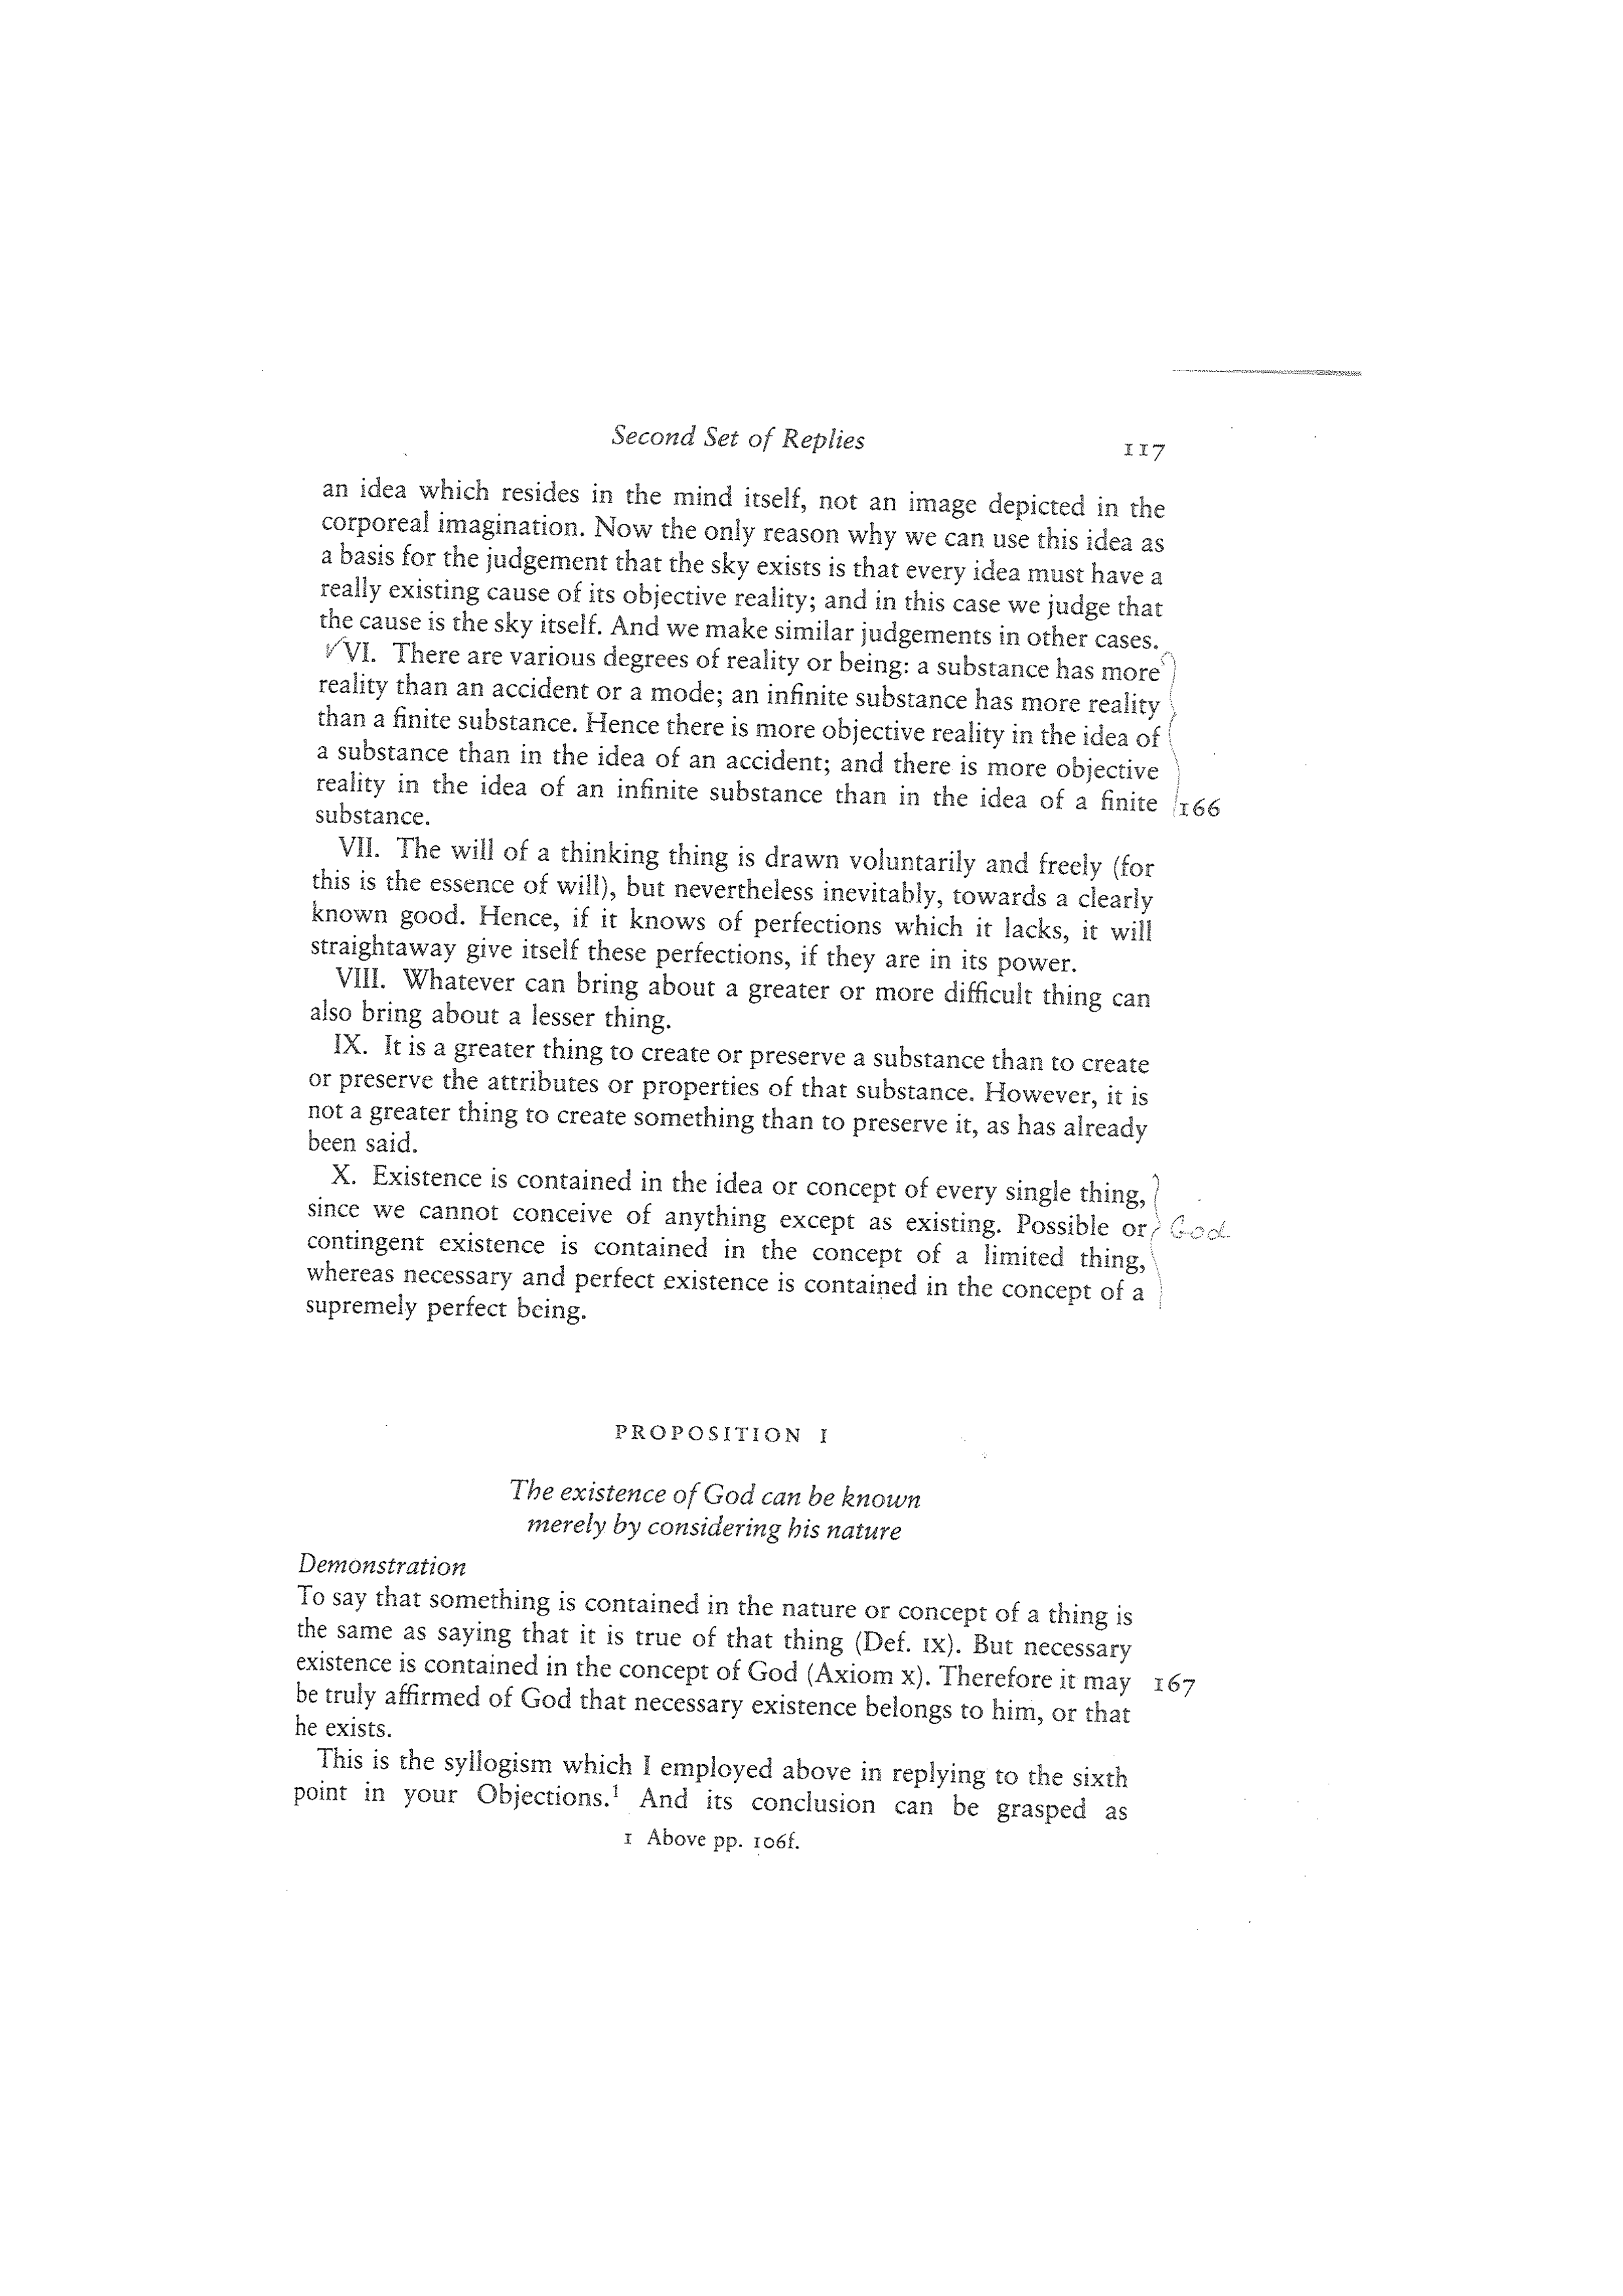 Second Set of Replies 117
an idea which resides in the mind itself, not an image depicted in the
corporeal imagination. Now the only reason why we can use this idea as
a basis for the judgement that the sky exists is that every idea must have a
really existing cause of its objective reality; and in this case we judge that
the cause is the sky itself. And we make similar judgements in other cases.
VI. There are various degrees of reality or being: a substance has more
reality than an accident or a mode; an infinite substance has more reality
than a finite substance. Hence there is more objective reality in the idea of
a substance than in the idea of an accident; and there is more objective
reality in the idea of an infinite substance than in the idea of a finite 166
substance.
VII. The will of a thinking thing is drawn voluntarily and freely (for
this is the essence of will), but nevertheless inevitably, towards a clearly
known good. Hence, if it knows of perfections which it lacks, it will
straightaway give itself these perfections, if they are in its power.
VIII. Whatever can bring about a greater or more difficult thing can
also bring about a lesser thing.
IX. It is a greater thing to create or preserve a substance than to create
or preserve the attributes or properties of that substance. However, it is
not a greater thing to create something than to preserve it, as has already
been said.
X. Existence is contained in the idea or concept of every single thing,
since we cannot conceive of anything except as existing. Possible or God
contingent existence is contained in the concept of a limited thing,
whereas necessary and perfect existence is contained in the concept of a
supremely perfect being.
PROPOSITION I
The existence of God can be known
merely by considering his nature
Demonstration
To say that something is contained in the nature or concept of a thing is
the same as saying that it is true of that thing (Def. IX). But necessary
existence is contained in the concept of God (Axiom X). Therefore it may 167
be truly affirmed of God that necessary existence belongs to him, or that
he exists.
This is the syllogism which I employed above in replying to the sixth
point in your Objections.¹ And its conclusion can be grasped as
1 Above pp. 106f.